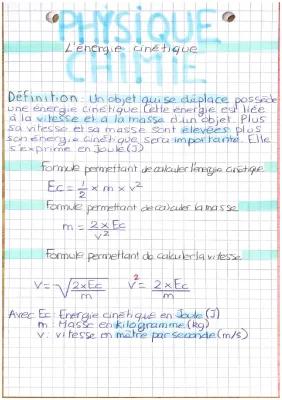 PHYSIQUE
L'énergie cinétique
CHIMIE
Définition : Un objet qui se déplace possède
une énergie cinétique. Cette énergie est liée
à la vitesse et à la masse d'un objet. Plus
sa vitesse et sa masse sont élevées plus
son énergie cinétique sera importante. Elle
s'exprime en Joule (J)
Formule permettant de calculer l'énergie cinétique
Ec = 1/2 × m × v²
Formule permettant de calculer la masse
m = 2×Ec / v²
Formule permettant de calculer la vitesse
v = √(2×Ec / m) v² = 2×Ec / m
Avec Ec : Énergie cinétique en Joule (J)
m : Masse en kilogramme (kg)
v : vitesse en mètre par seconde (m/s)